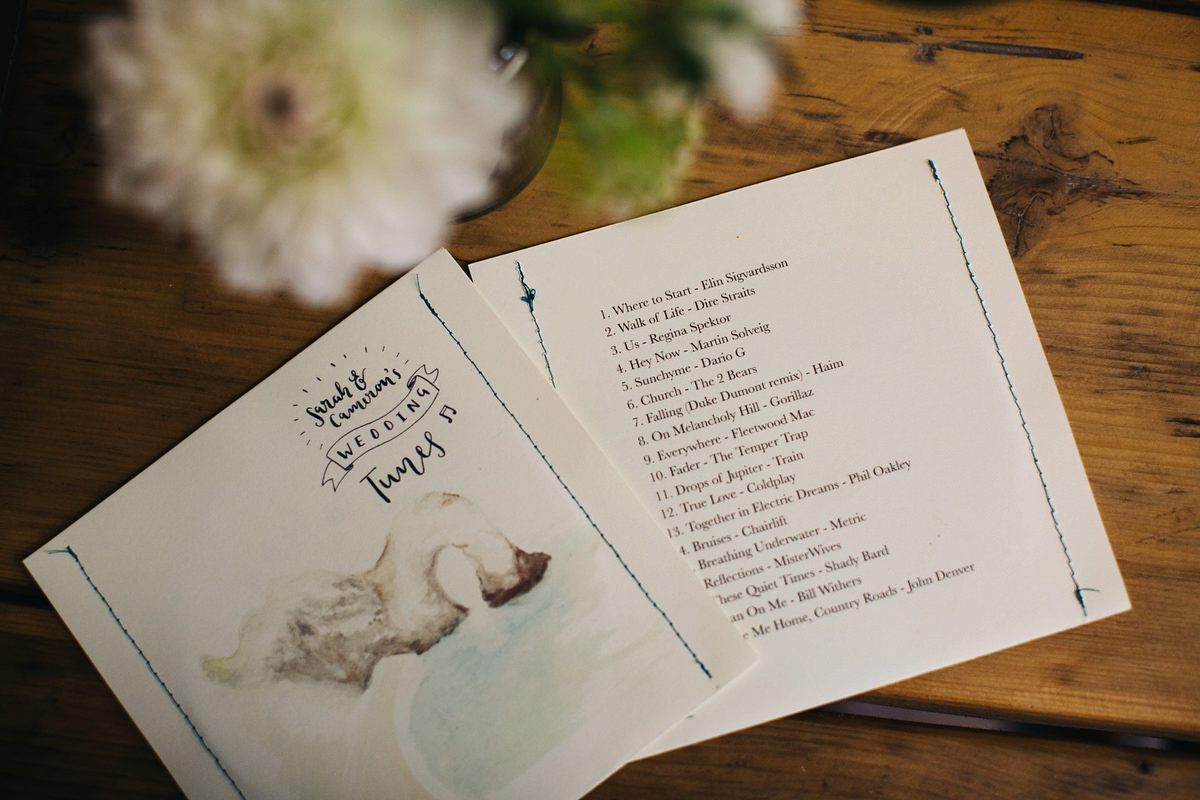 Sarah &
Cameron's
WEDDING
Tunes
1. Where to Start - Elin Sigvardsson
2. Walk of Life - Dire Straits
3. Us - Regina Spektor
4. Hey Now - Martin Solveig
5. Sunchyme - Dario G
6. Church - The 2 Bears
7. Falling (Duke Dumont remix) - Haim
8. On Melancholy Hill - Gorillaz
9. Everywhere - Fleetwood Mac
10. Fader - The Temper Trap
11. Drops of Jupiter - Train
12. True Love - Coldplay
13. Together in Electric Dreams - Phil Oakley
4. Bruises - Chairlift
Breathing Underwater - Metric
Reflections - MisterWives
These Quiet Times - Shady Bard
an On Me - Bill Withers
e Me Home, Country Roads - John Denver